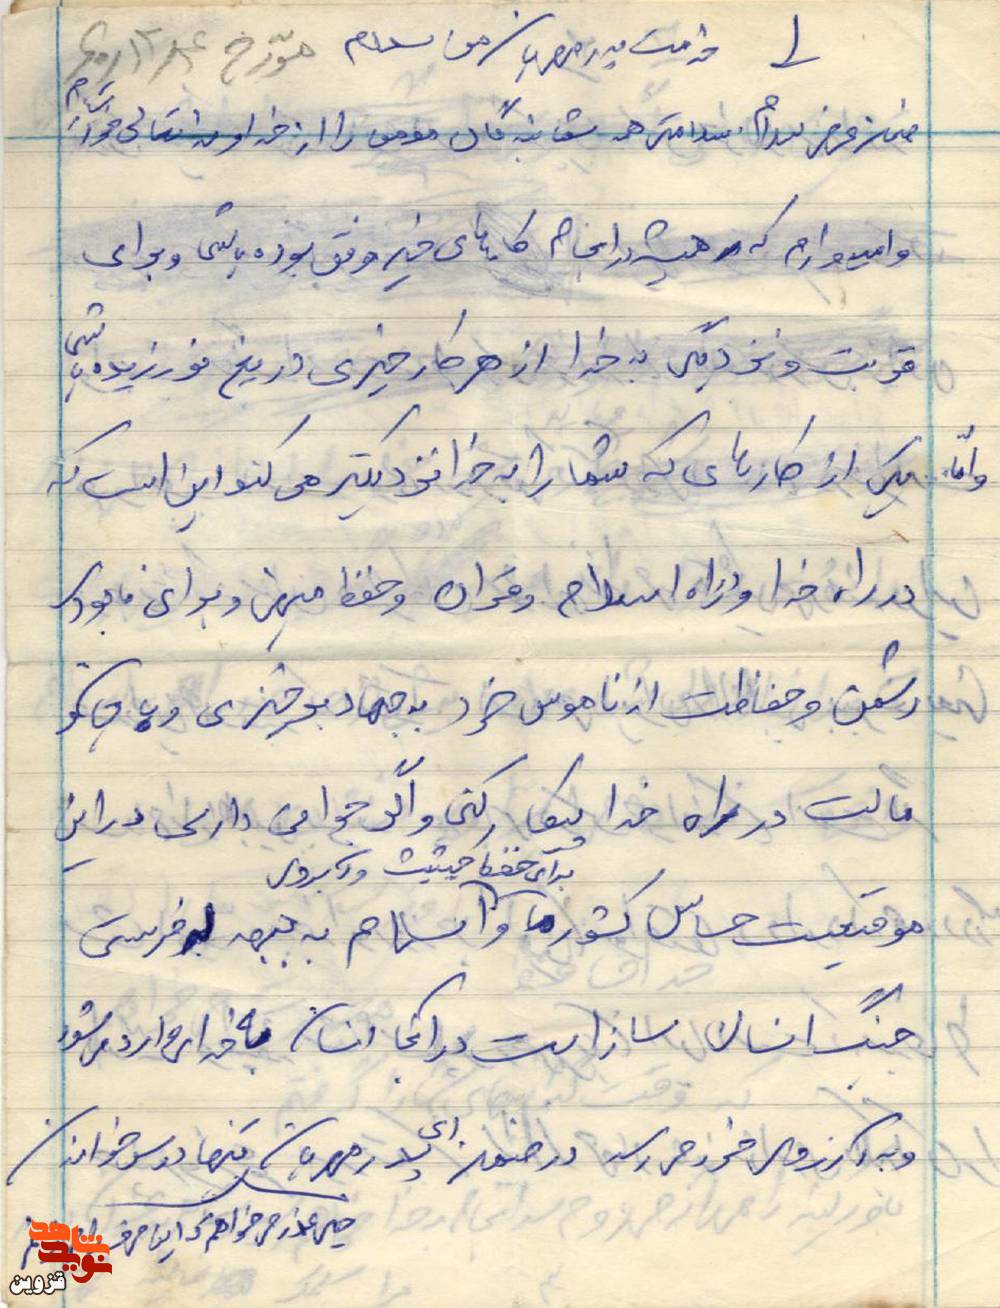 خدمت پدر مهربان من سلام مورخ
ضمن عرض سلام سلامتی همه شما بندگان مومن را از خداوند متعال خواستارم
و امیدوارم که همیشه در انجام کارهای خیر موفق بوده باشی و برای
قربت و نزدیکی به خدا از هر کار خیری دریغ نورزیده باشی
و اما یکی از کارهای که شما را به خدا نزدیکتر می کند این است که
در راه خدا و در راه اسلام و قرآن و حفظ میهن و برای نابودی
دشمن و حفاظت از ناموس خود به جهاد برخیزی و با
مالت در راه خدا پیکار کنی و اگر جوانی داری در این
برای حفظ حیثیت و آبروی
موقعیت حساس کشور ما و اسلام به جبهه بفرستی
جنگ انسان ساز است در آنجا انسان به خدا می شود
و به آرزوی خود می رسد در ضمن ای پدر مهربان تنها درس خواندن
خیلی عذر می خواهم
نوید شاهد
قزوین